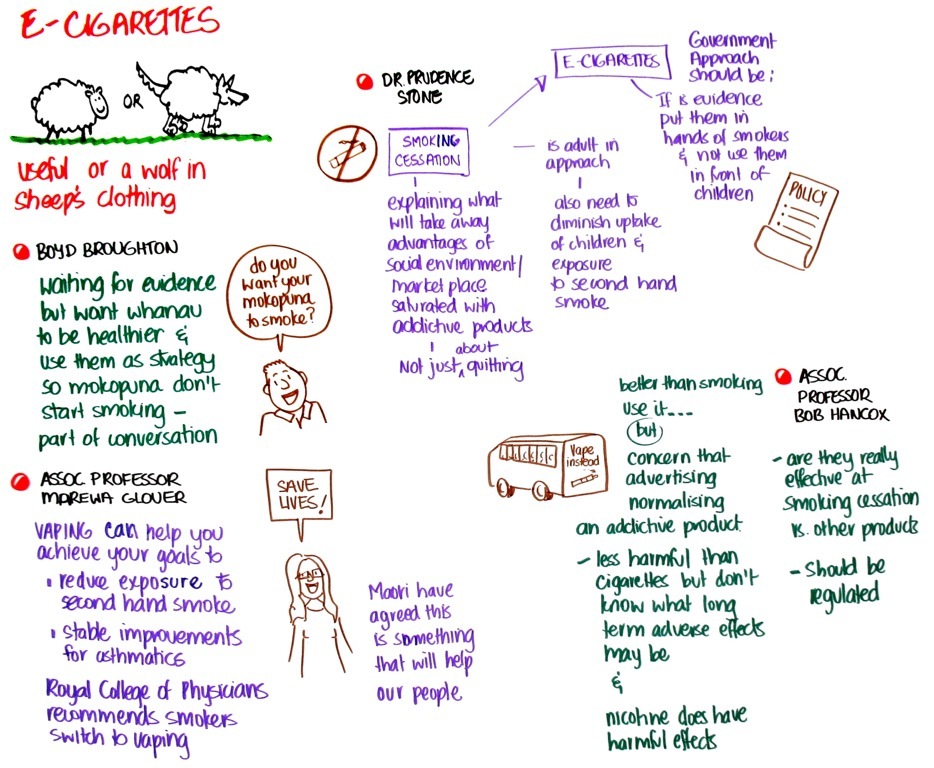 E-CIGARETTES
OR
useful or a wolf in
sheep's clothing
BOYD BROUGHTON
waiting for evidence
but want whanau
to be healthier &
use them as strategy
so mokopuna don't
start smoking -
part of conversation
do you
want your
mokopuna
to smoke?
ASSOC PROFESSOR
MAREWA GLOVER
VAPING can help you
achieve your goals to
• reduce exposure to
second hand smoke
• stable improvements
for asthmatics
Royal College of Physicians
recommends smokers
switch to vaping
SAVE
LIVES!
Maori have
agreed this
is something
that will help
our people
DR. PRUDENCE
STONE
SMOKING
CESSATION
explaining what
will take away
advantages of
social environment/
market place
saturated with
addictive products
Not just about quitting
is adult in
approach
also need to
diminish uptake
of children &
exposure
to second hand
smoke
E-CIGARETTES
Government
Approach
should be:
If is evidence
put them in
hands of smokers
& not use them
in front of
children
POLICY
Vape
instead
better than smoking
use it....
but
concern that
advertising
normalising
an addictive product
- less harmful than
cigarettes but don't
know what long
term adverse effects
may be
&
nicotine does have
harmful effects
ASSOC.
PROFESSOR
BOB HANCOX
- are they really
effective at
smoking cessation
vs. other products
- Should be
regulated